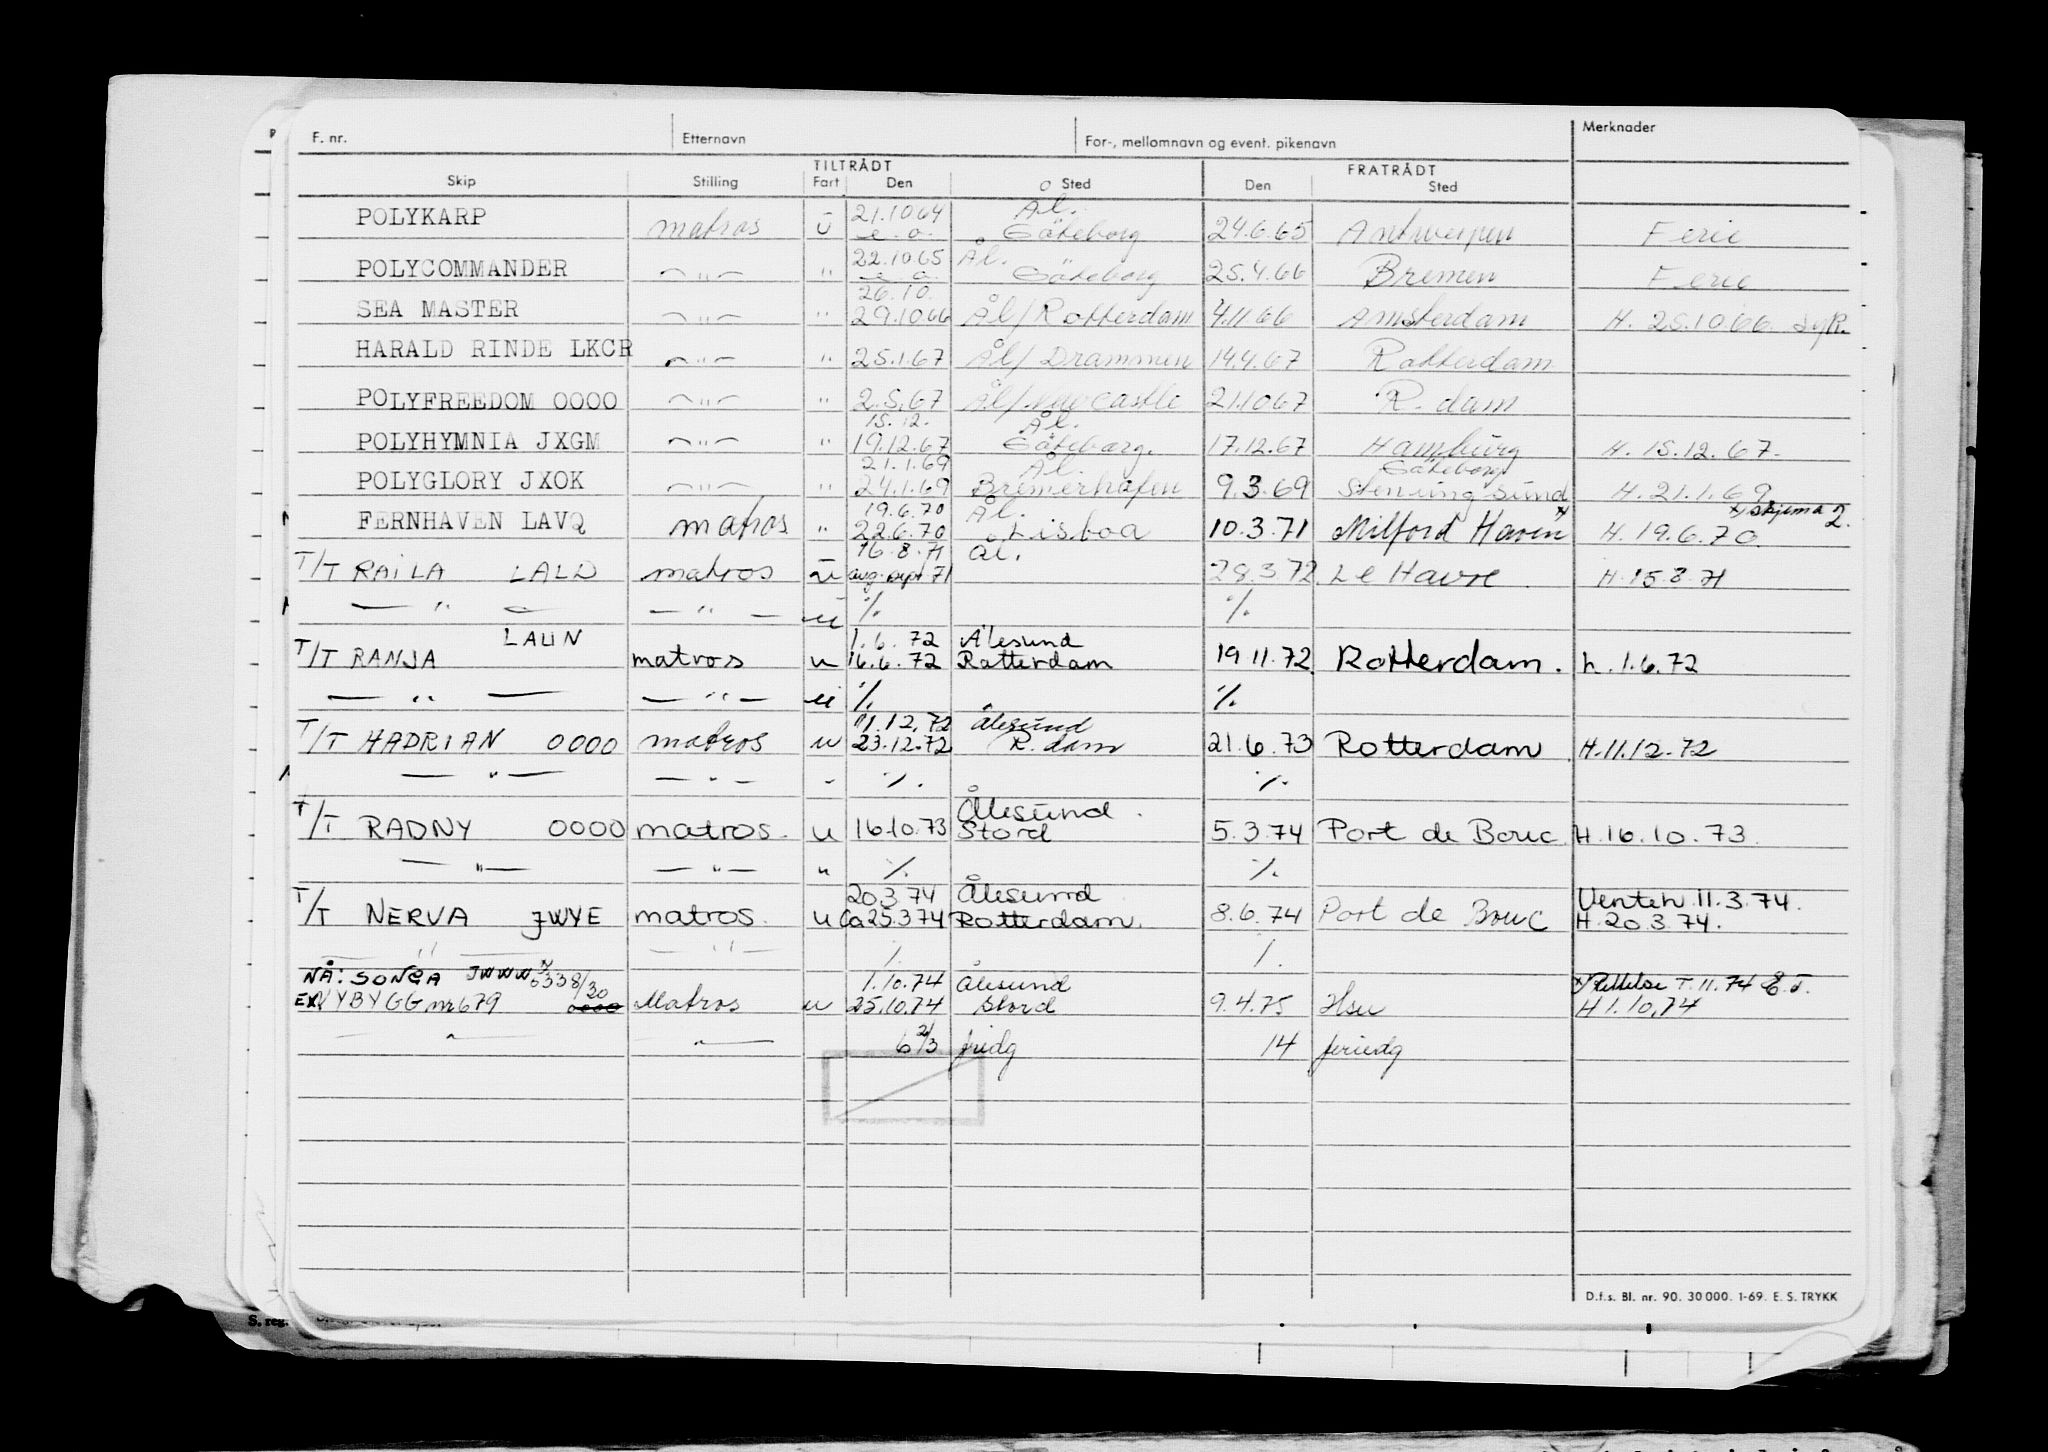 F. nr. Etternavn For-, mellomnavn og event. pikenavn Merknader
TILTRÅDT FRATRÅDT
Skip Stilling Fart Den Sted Den Sted
21.10 64 Ål.
POLYKARP matros u e. o. Göteborg 24.6.65 Antwerpen Ferie
22.10 65 Ål.
POLYCOMMANDER — " — " e. o. Göteborg 25.4.66 Bremen Ferie
26.10.
SEA MASTER — " — " 29.10 66 Ål/Rotterdam 4.11.66 Amsterdam H. 25.10 66
HARALD RINDE LKCR — " — " 25.1.67 Ål/Drammen 14.4.67 Rotterdam
POLYFREEDOM OOOO — " — " 2.5.67 Ål/Newcastle 21.10 67 R. dam
15.12. Ål.
POLYHYMNIA JXGM — " — " 19.12.67 Göteborg. 17.12.67 Hamburg H. 15.12.67.
21.1.69 Ål. Göteborg
POLYGLORY JXOK — " — " 24.1.69 Bremerhafen 9.3.69 Stenungsund H. 21.1.69
19.6.70 Ål. x) x) skjema 2.
FERNHAVEN LAVQ matros " 22.6.70 Lisboa 10.3.71 Milford Haven H. 19.6.70
16.8.71 Ål.
T/T RAILA LALD matros u aug-sept 71 28.3.72 Le Havre H. 15.8.71
— " — — " — u ·/. ·/.
LAUN 1.6.72 Ålesund
T/T RANJA matros u 16.6.72 Rotterdam 19 11.72 Rotterdam. h. 1.6.72
— " — — " — u ·/. ·/.
11.12.72 Ålesund
T/T HADRIAN 0000 matros u 23.12.72 R. dam 21.6.73 Rotterdam H. 11.12.72
— " — — " — " ·/. ·/.
Ålesund.
T/T RADNY 0000 matros. u 16.10.73 Stord 5.3.74 Port de Bouc H. 16.10.73.
— " — — " — " ·/. ·/.
20.3.74 Ålesund Venteh. 11.3.74.
T/T NERVA JWYE matros. u Ca 25.3.74 Rotterdam. 8.6.74 Port de Bouc H. 20.3.74.
" — " — ·/. ·/.
NÅ: SONGA JWWW x) 5338/30 1.10.74 Ålesund x) Rettelse T. 11.74 E.T.
EX NYBYGG nr 679 0000 Matros u 25.10.74 Stord 9.4.75 Hsu H 1.10.74
— " — — " — 6 2/3 fridg 14 feriedg
D.f.s. Bl. nr. 90. 30 000. 1-69. E. S. TRYKK
S. reg.